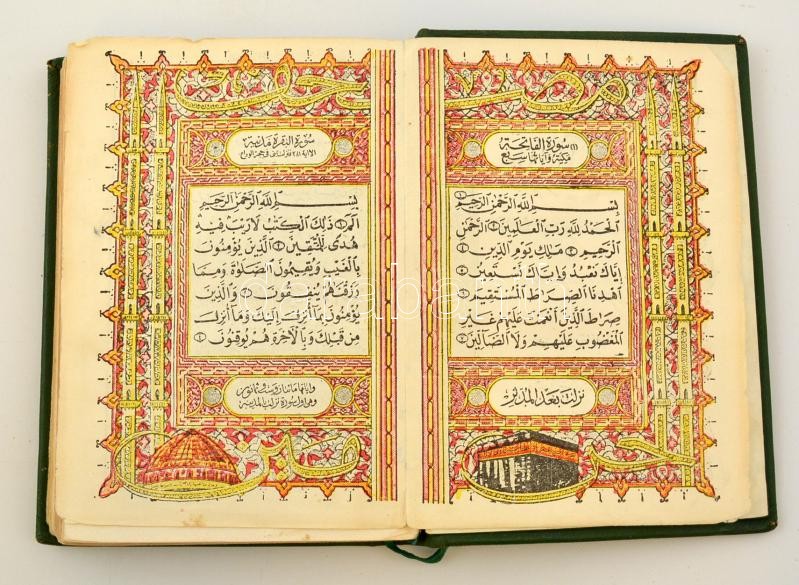 (١) سورة الفاتحة
مكية وآياتها سبع
بسم الله الرحمن الرحيم ١
الحمد لله رب العالمين ٢ الرحمن
الرحيم ٣ مالك يوم الدين ٤
إياك نعبد وإياك نستعين ٥
اهدنا الصراط المستقيم ٦
صراط الذين أنعمت عليهم غير
المغضوب عليهم ولا الضالين ٧
نزلت بعد المدثر
سورة البقرة مدنية
بسم الله الرحمن الرحيم
الم ١ ذلك الكتب لا ريب فيه
هدى للمتقين ٢ الذين يؤمنون
بالغيب ويقيمون الصلوة ومما
رزقنهم ينفقون ٣ والذين
يؤمنون بما أنزل إليك وما أنزل
من قبلك وبالآخرة هم يوقنون ٤
وآياتها مائتان وست وثمانون
وهي أول سورة نزلت بالمدينة
darabanth